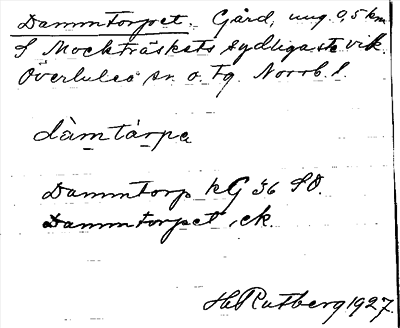 Dammtorpet. Gård, ung. 0,5 km
S Mockträskets sydligaste vik.
Överluleå sn. o. tg. Norrb. l.
dàmtàrpa
Dammtorp kG 36 SO.
Dammtorpet, ek.
H Rutberg 1927.